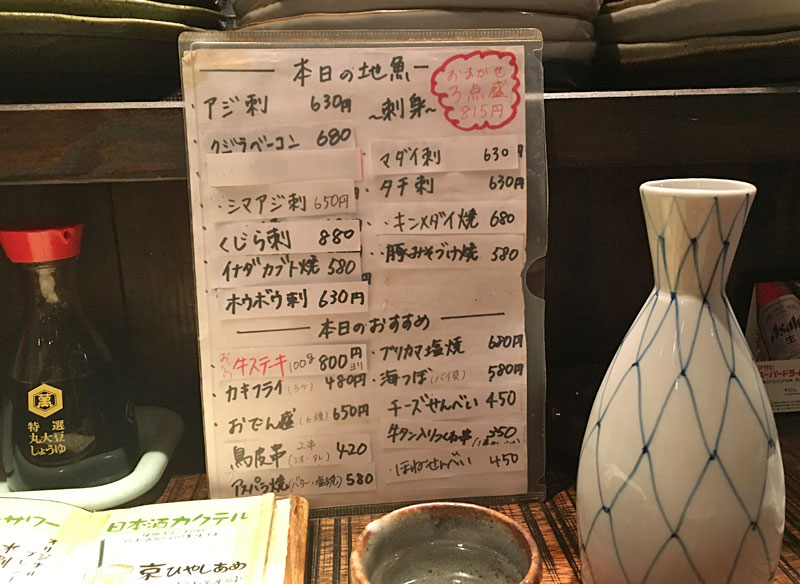 本日の地魚
〜刺身〜
おまかせ
3点盛
815円
アジ刺 630円
クジラベーコン 680
シマアジ刺 650円
くじら刺 880
イナダカブト焼 580
ホウボウ刺 630円
マダイ刺 630
タチ刺 630円
キンメダイ焼 680
豚みそづけ焼 580
本日のおすすめ
牛ステキ 100g 800円ヨリ
カキフライ(3ケ) 480円
おでん盛(6種) 650円
鳥皮串 2串 (シオ・タレ) 420
アスパラ焼 580
ブリカマ塩焼 680円
海つぼ(バイ貝) 580円
チーズせんべい 450
牛タン入りつくね串 250
ほねせんべい 450
萬
特選
丸大豆
しょうゆ
サワー
日本酒カクテル
京ひやしあめ
Asahi
生